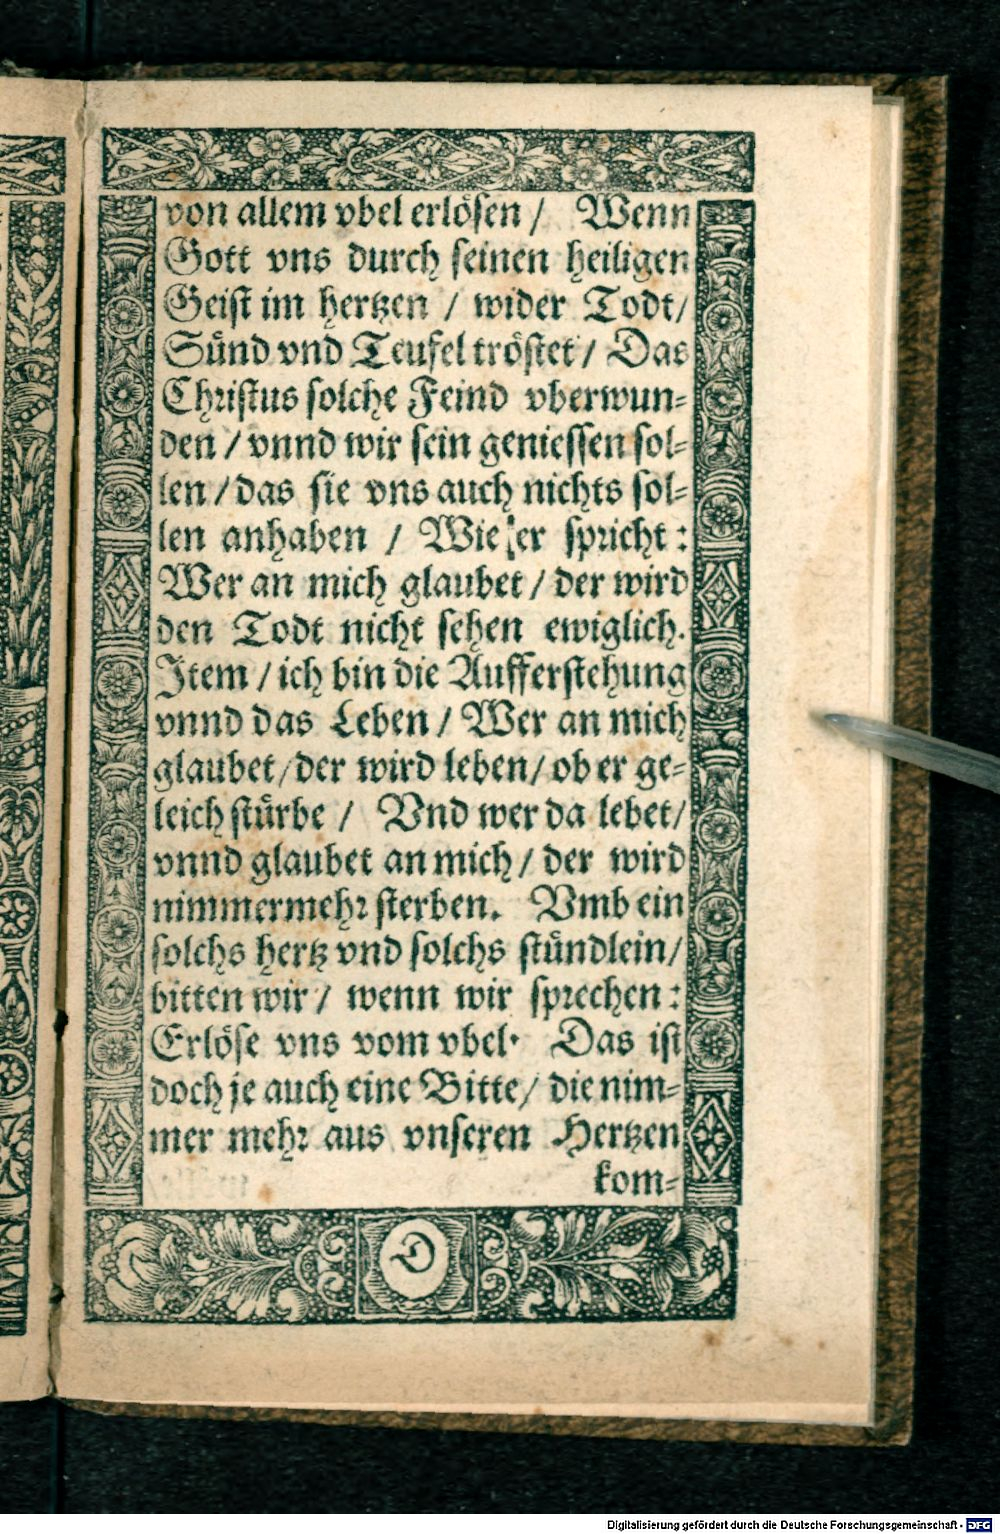 von allem vbel erlösen / Wenn
Gott vns durch seinen heiligen
Geist im hertzen / wider Todt/
Sünd vnd Teufel tröstet / Das
Christus solche Feind vberwun-
den / vnnd wir sein geniessen sol-
len / das sie vns auch nichts sol-
len anhaben / Wie er spricht:
Wer an mich glaubet / der wird
den Todt nicht sehen ewiglich.
Item / ich bin die Aufferstehung
vnnd das Leben / Wer an mich
glaubet/der wird leben/ ob er ge-
leich stürbe / Vnd wer da lebet/
vnnd glaubet an mich / der wird
nimmermehr sterben. Vmb ein
solchs hertz vnd solchs stündlein/
bitten wir / wenn wir sprechen:
Erlöse vns vom vbel. Das ist
doch je auch eine Bitte/ die nim-
mer mehr aus vnseren Hertzen
kom-
D
Digitalisierung gefördert durch die Deutsche Forschungsgemeinschaft - DFG